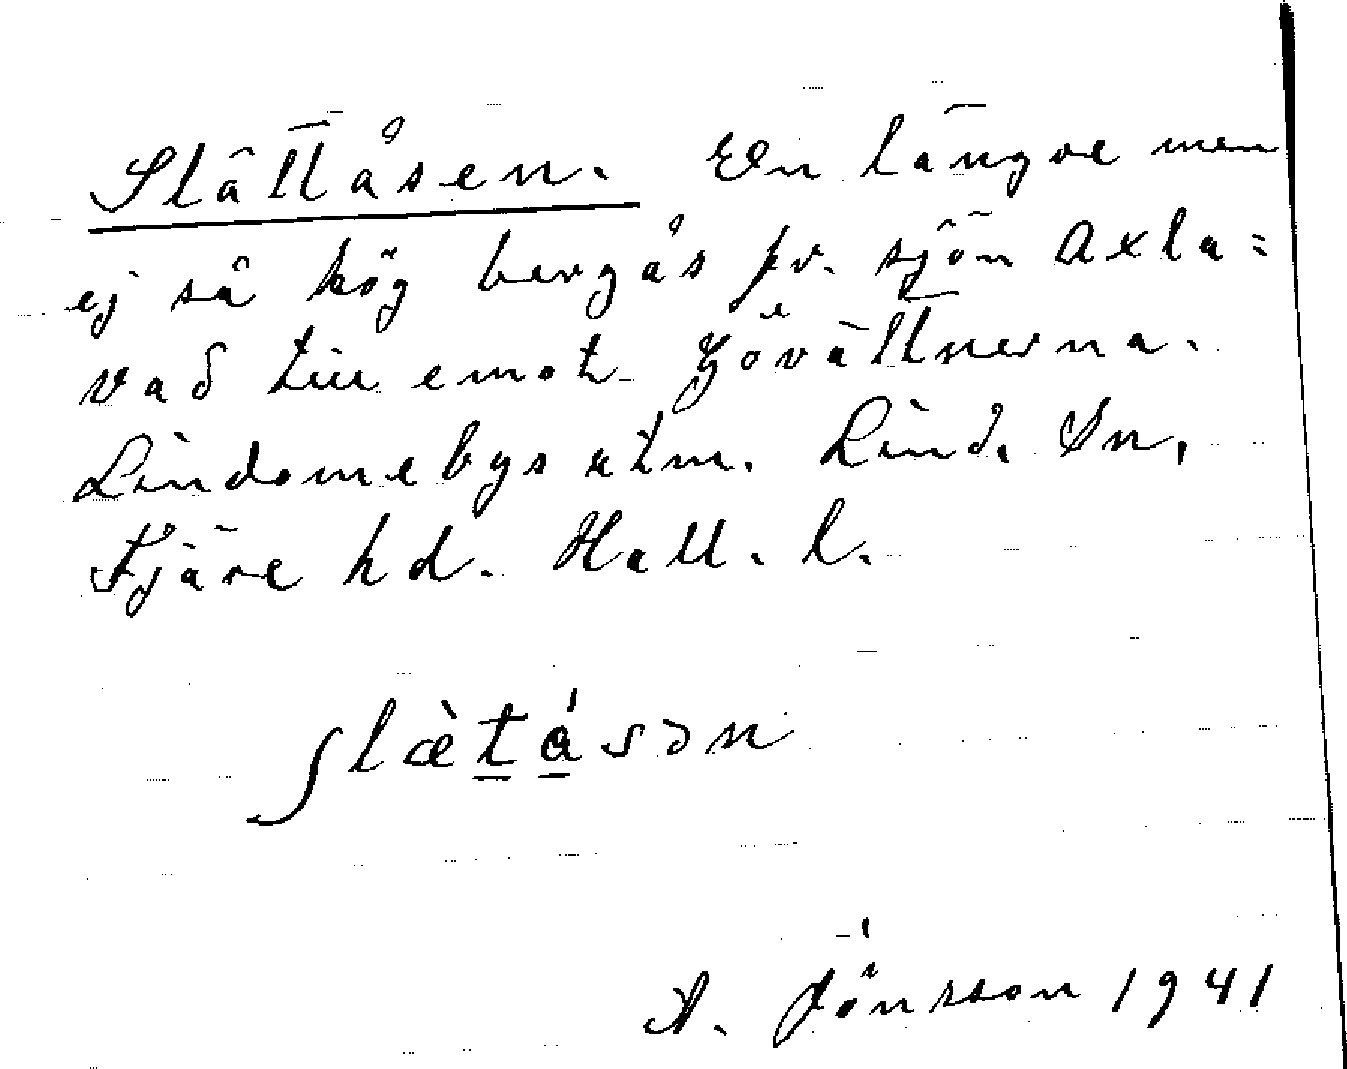 Slättåsen. En längre men
ej så hög bergås fr. sjön Axla=
vad till emot Gövältnerna.
Lindomebys utm. Lind. Sn,
Fjäre hd. Hall. l.
ʃlæ̀tásən
A. Jönsson 1941